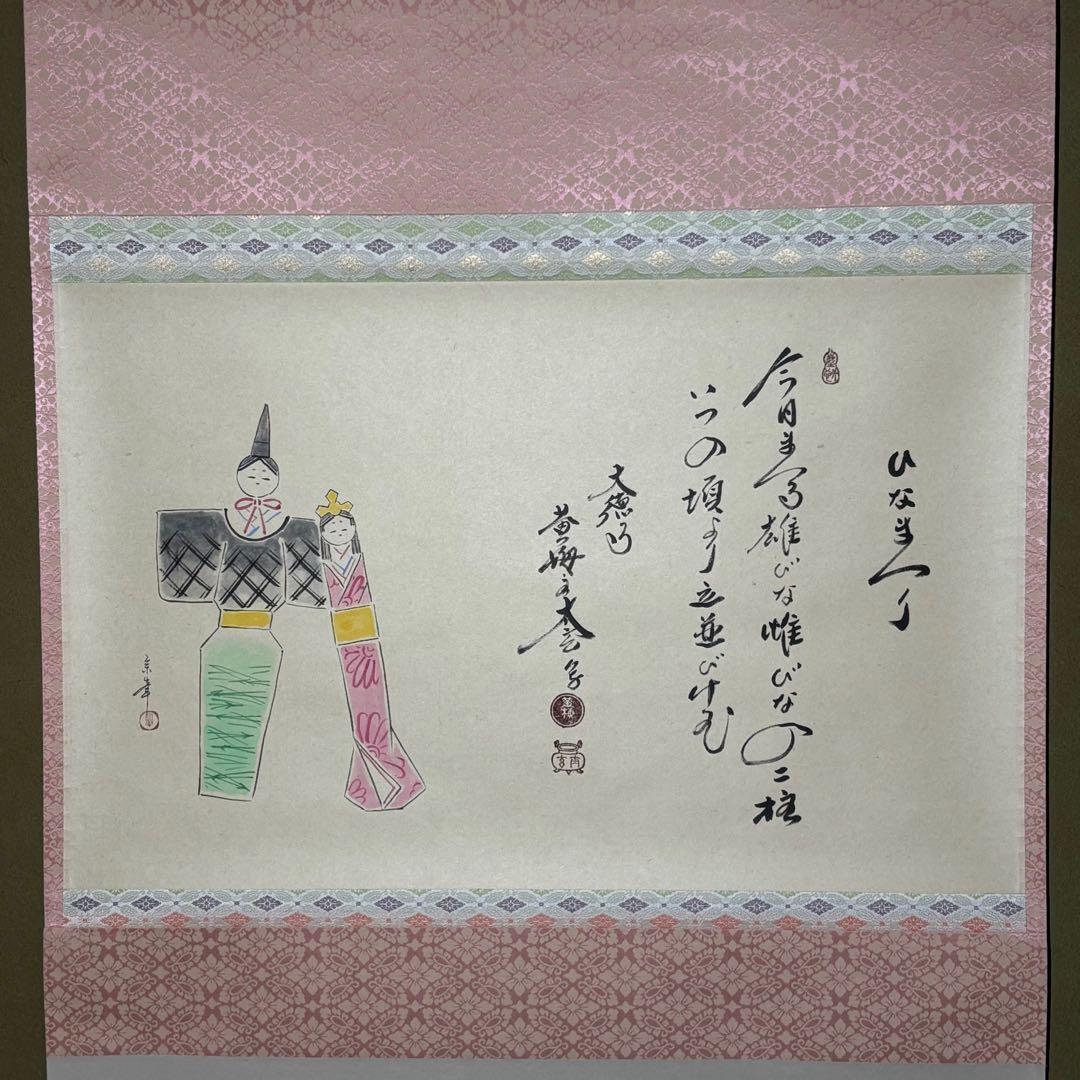 ひなまつり
今日まつる雄びな雌びなの二柱
いつの頃より立並びけむ
大徳
黄梅主太玄書